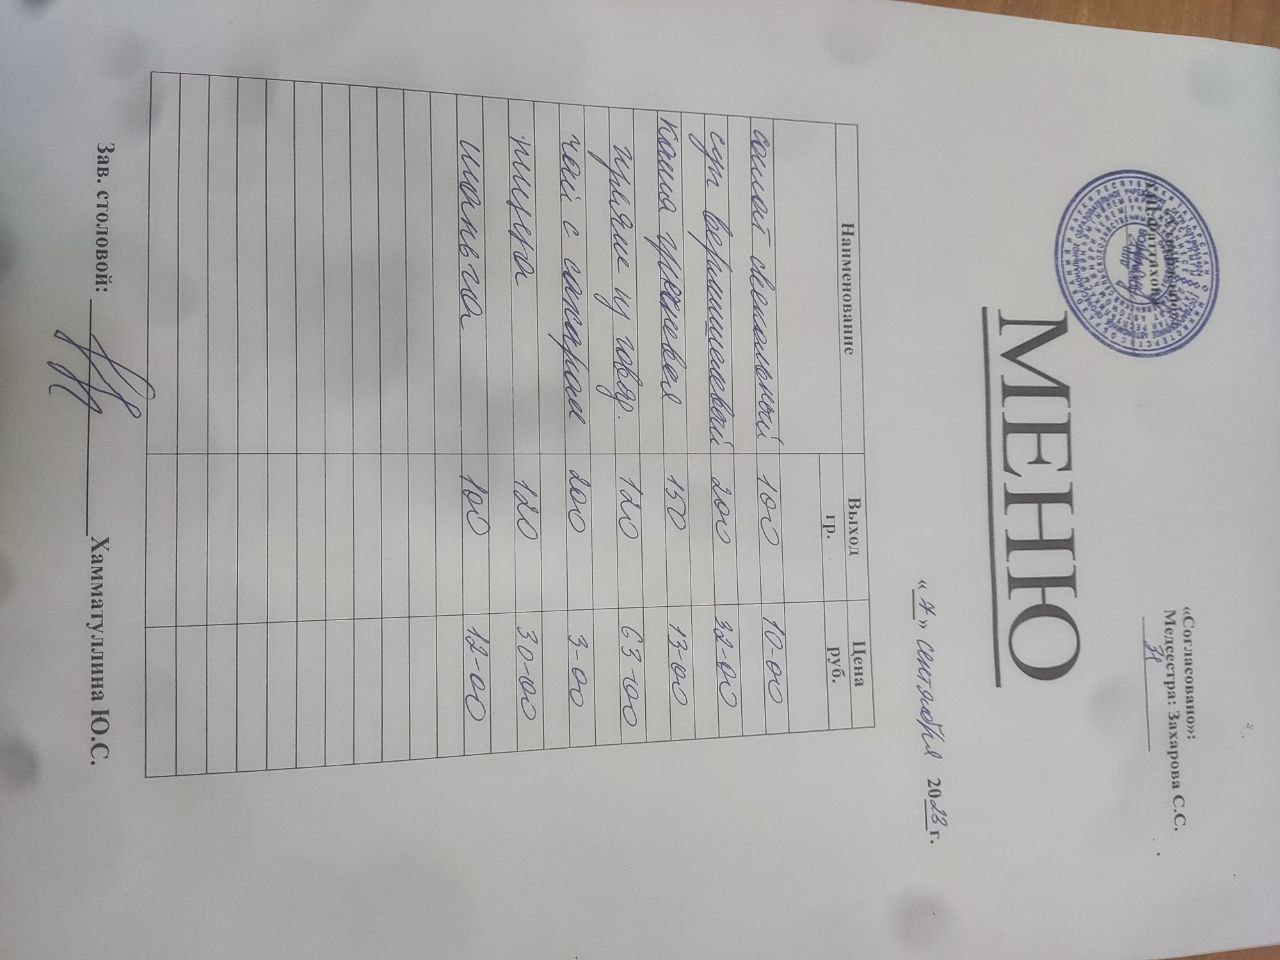 «Согласовано»:
Медсестра: Захарова С.С.
МЕНЮ
« 7 » сентября 2023 г.
Наименование Выход гр. Цена руб.
салат свекольный 100 10-00
суп вермишелевый 200 32-00
каша гречневая 150 13-00
гуляш из говяд. 120 63-00
чай с сахаром 200 3-00
пицца 120 30-00
шаньга 100 12-00
Зав. столовой: Хамматуллина Ю.С.